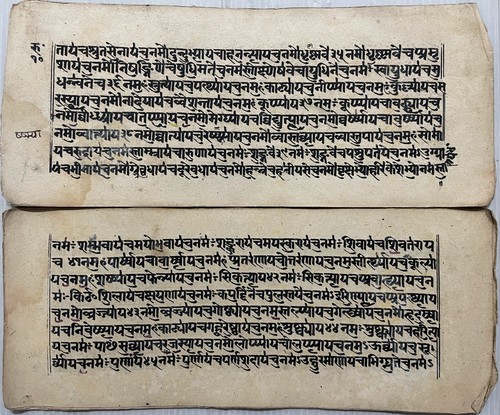 रु० ताय॑चश्रुतसेनाय॑चनमो॑दुन्दुभ्यायचाहनन्यायचनमो॑धृष्णवे॑च३५नमो॑धृष्णवे॑चप्रमृ
१० शाय॑चनमो॑निषङ्गिणे॑चेषुधिमते॑चनम॑स्तीक्ष्णेषवेचायुधिने॑चनमः॑स्वायुधाय॑चसु
धन्वनेच३६नमः॒स्रुत्यायचपथ्यायचनमः॒काट्यायचनीप्यायचनमः॒कुल्यायचस
रस्यायचनमो॑नादेयाय॑चवैशन्ताय॑च३७नमः॒कूप्याय॑ नमः॒कूप्यायचावट्यायच
नमो॒वीध्र्यायचातप्यायचनमो॒मेघ्यायचविद्युत्यायचनमो॒वर्ष्यायचावर्ष्यायच३८
नमो॒वात्याय॑च नमो॒वात्यायचरेष्म्यायचनमो॑वास्तव्यायचवास्तुपाय॑चनमः॒सोमा
यचरुद्राय॑चनम॑स्ताम्राय॑चारुणाय॑चनमः॑शङ्गवे॑च३९नमः॑शङ्गवे॑चपशुपत॑येचनम॑उग्रा
य॑चभीमाय॑चनमो॑ग्रेवधाय॑चदूरेवधाय॑चनमो॑हन्त्रेचहनी॑यसेचनमो॑वृक्षेभ्योहरि॑केशेभ्योनम॑स्ता
नमः॑शम्भवाय॑चमयोभवाय॑चनमः॑शङ्कराय॑चमयस्कराय॑चनमः॑शिवाय॑चशिवत॑राय
च४१नमः॒पार्यायचावार्यायचनमः॑प्रतरणायचोत्तरणायचनम॒स्तीर्थ्यायचकूल्या
यचनमः॒शष्प्यायचफेन्यायचनमः॑सिकत्याय४२नमः॑सिकत्यायचप्रवाह्यायचन
मः॑किᳪशिलाय॑चक्षयणाय॑चनमः॑कपर्दिने॑चपुलस्तये॑चनम॑इरिण्यायचप्रपथ्याय
चनमो॒व्रज्याय४३नमो॒व्रज्यायचगोष्ठ्यायचनम॒स्तल्प्यायचगेह्यायचनमो॑हृदय्या
यचनिवेष्प्यायचनमः॒काट्यायचगह्वरेष्ठाय॑चनमः॒शुष्क्याय४४नमः॒शुष्क्यायचहरित्या
यचनमः॑पाᳪसव्यायचरजस्यायचनमो॒लोप्यायचोलप्यायचनम॒ऊर्व्यायचसू
र्व्यायचनमः॑पर्णाय॑४५नमः॑पर्णाय॑चपर्णशदाय॑चनम॑उद्गुरमाणायचाभिघ्नतेचनम॑आ